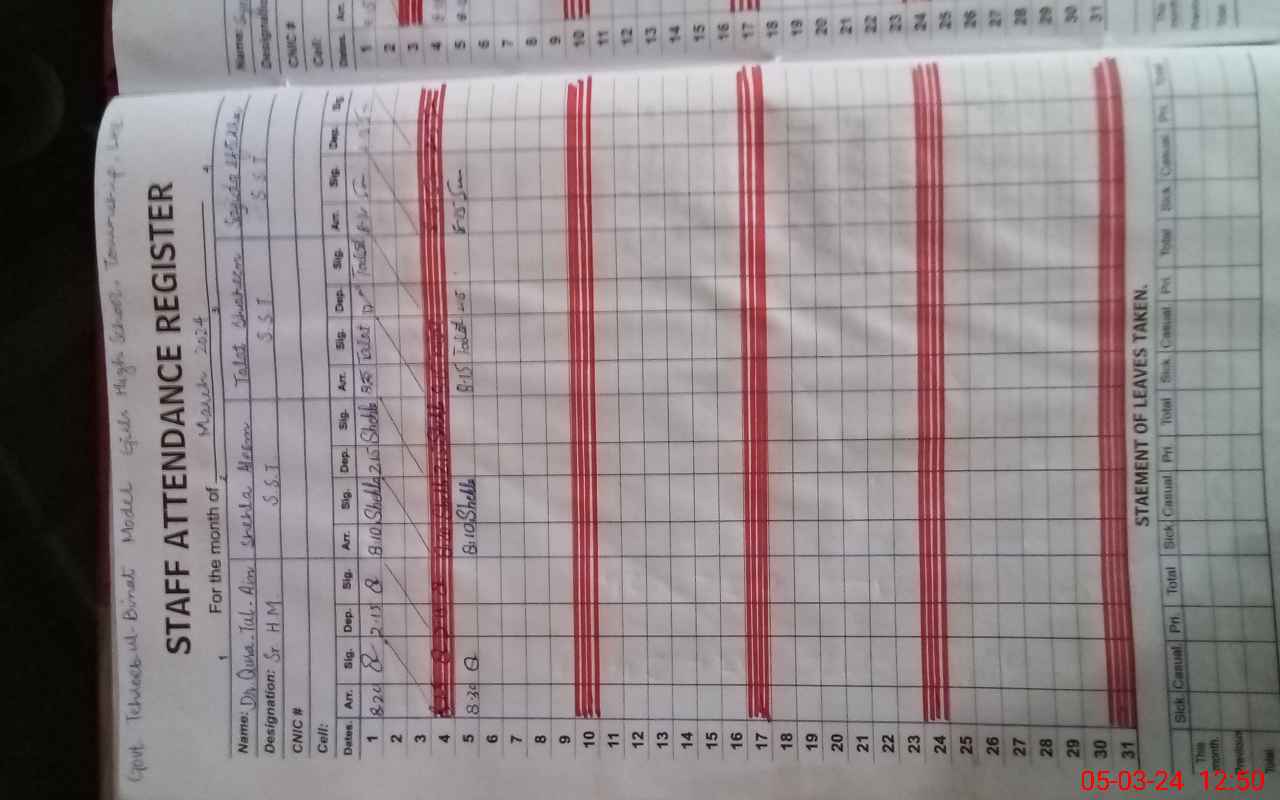 Govt. Tehzeeb-ul-Binat Model Girls High School. Township. Lhr
STAFF ATTENDANCE REGISTER
For the month of March 2024
1 2 3 4
Name: Dr. Qura-Tul-Ain Shehla Talat Shaheen
Designation: Sr. H M S S T S S T S S T
CNIC #
Cell:
Dates. Arr. Sig. Dep. Sig. Arr. Sig. Dep. Sig. Arr. Sig. Dep. Sig. Arr. Sig. Dep. Sig.
1 8:20 2:15 8:10 Shehla 2:15 Shehla Talat Talat
2
3
4
5 8:30 8:10 Shehla 8:15 Talat 8:15
6
7
8
9
10
11
12
13
14
15
16
17
18
19
20
21
22
23
24
25
26
27
28
29
30
31
STAEMENT OF LEAVES TAKEN.
Sick Casual Pri. Total Sick Casual Pri. Total Sick Casual Pri. Total Sick Casual Pri. Total
This month.
Previous
Total
Name:
Designation
CNIC #
Cell:
Dates. Arr.
1
2
3
4
5
6
7
8
9
10
11
12
13
14
15
16
17
18
19
20
21
22
23
24
25
26
27
28
29
30
31
This month
Previous
Total
05-03-24 12:50